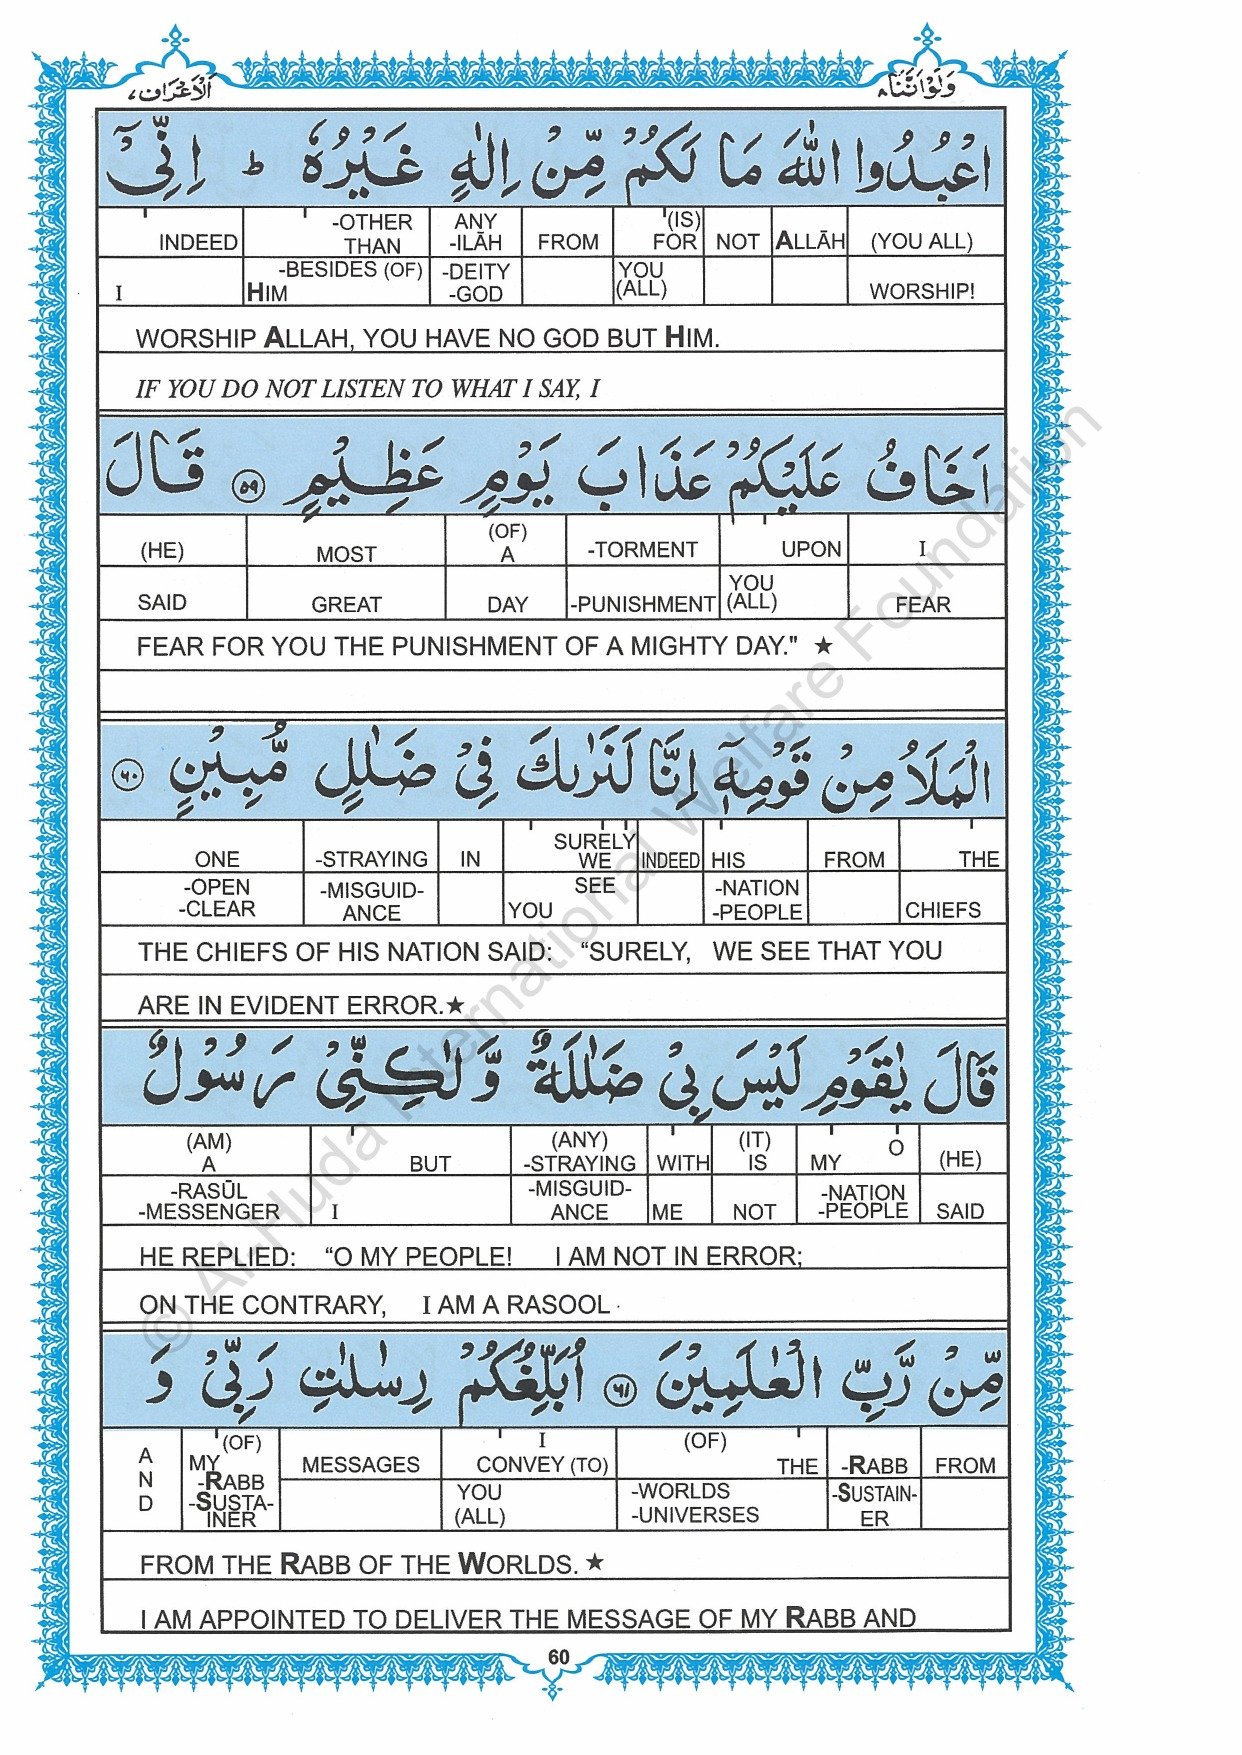 وَلَوْ اَنَّنَا ٨
اَلْاَعْرَاف ٧
اعْبُدُوا اللّٰهَ مَا لَكُمْ مِّنْ اِلٰهٍ غَيْرُهٗ ؕ اِنِّیْۤ
(YOU ALL) ALLĀH NOT (IS) FOR FROM ANY -ILĀH -OTHER THAN INDEED
WORSHIP! YOU (ALL) -DEITY -GOD -BESIDES (OF) HIM I
WORSHIP ALLAH, YOU HAVE NO GOD BUT HIM.
IF YOU DO NOT LISTEN TO WHAT I SAY, I
اَخَافُ عَلَيْكُمْ عَذَابَ يَوْمٍ عَظِيْمٍ ﴿٥٩﴾ قَالَ
I UPON -TORMENT (OF) A MOST (HE)
FEAR YOU (ALL) -PUNISHMENT DAY GREAT SAID
FEAR FOR YOU THE PUNISHMENT OF A MIGHTY DAY." ★
الْمَلَاُ مِنْ قَوْمِهٖۤ اِنَّا لَنَرٰىكَ فِیْ ضَلٰلٍ مُّبِيْنٍ ﴿٦٠﴾
THE FROM HIS INDEED SURELY WE IN -STRAYING ONE
CHIEFS -NATION -PEOPLE SEE YOU -MISGUID-ANCE -OPEN -CLEAR
THE CHIEFS OF HIS NATION SAID: “SURELY, WE SEE THAT YOU
ARE IN EVIDENT ERROR.★
قَالَ يٰقَوْمِ لَيْسَ بِیْ ضَلٰلَةٌ وَّلٰكِنِّیْ رَسُوْلٌ
(HE) O MY (IT) IS WITH (ANY) -STRAYING BUT (AM) A
SAID -NATION -PEOPLE NOT ME -MISGUID-ANCE I -RASŪL -MESSENGER
HE REPLIED: “O MY PEOPLE! I AM NOT IN ERROR;
ON THE CONTRARY, I AM A RASOOL
مِّنْ رَّبِّ الْعٰلَمِيْنَ ﴿٦١﴾ اُبَلِّغُكُمْ رِسٰلٰتِ رَبِّیْ وَ
FROM -RABB (OF) THE I CONVEY (TO) MESSAGES (OF) MY -RABB AND
-SUSTAIN-ER -WORLDS -UNIVERSES YOU (ALL) -SUSTA-INER
FROM THE RABB OF THE WORLDS. ★
I AM APPOINTED TO DELIVER THE MESSAGE OF MY RABB AND
60
© Al-Huda International Welfare Foundation